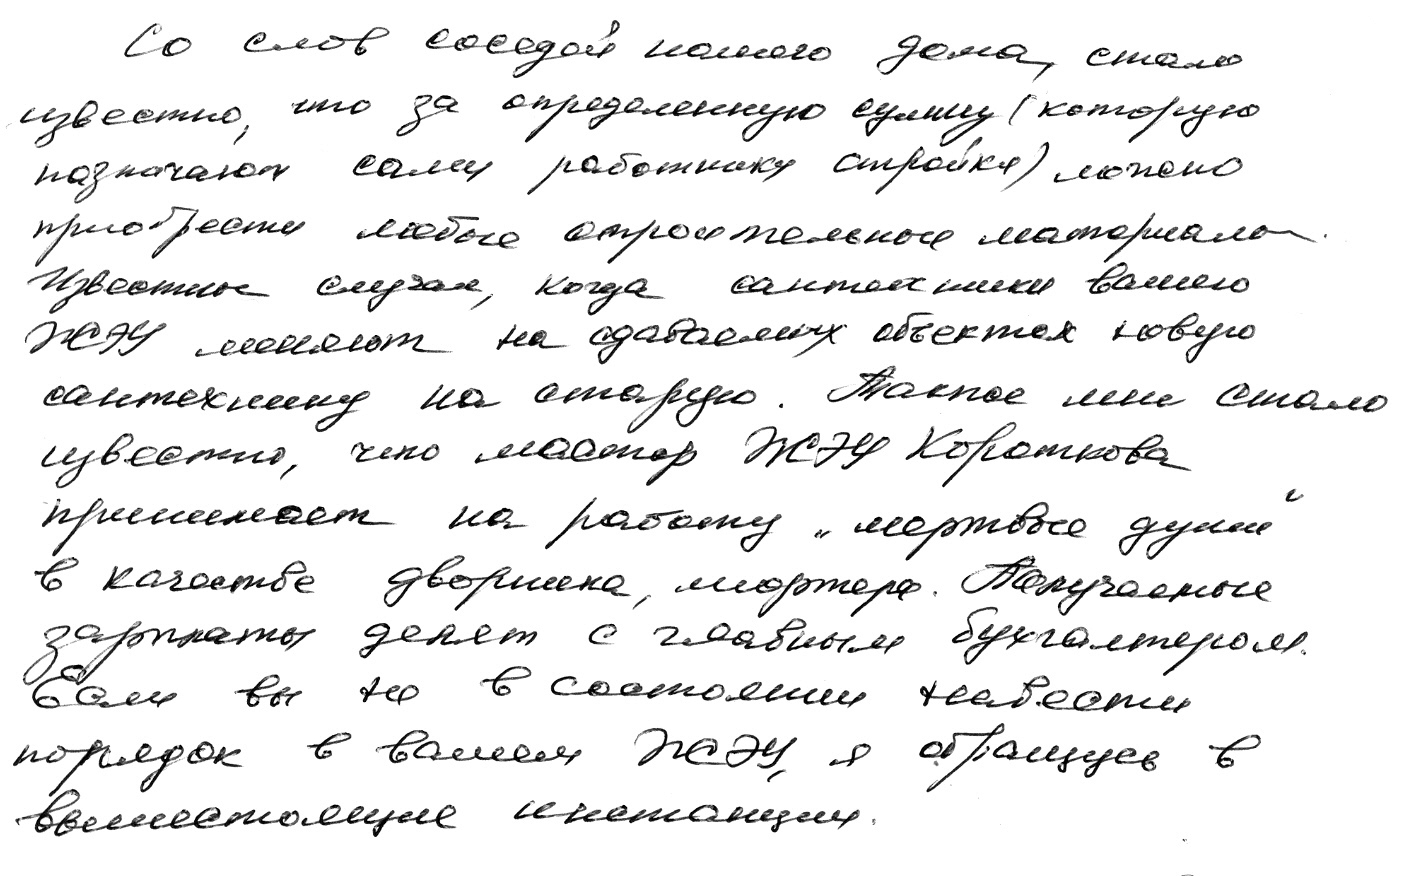 Со слов соседей нашего дома, стало
известно, что за определенную сумму (которую
назначают сами работники стройки) можно
приобрести любые строительные материалы.
Известны случаи, когда сантехники вашего
ЖЭУ меняют на сдаваемых объектах новую
сантехнику на старую. Также мне стало
известно, что мастер ЖЭУ Короткова
принимает на работу „мертвые души“
в качестве дворника, лифтера. Получаемые
зарплаты делят с главным бухгалтером.
Если вы не в состоянии навести
порядок в вашем ЖЭУ, я обращусь в
вышестоящие инстанции.